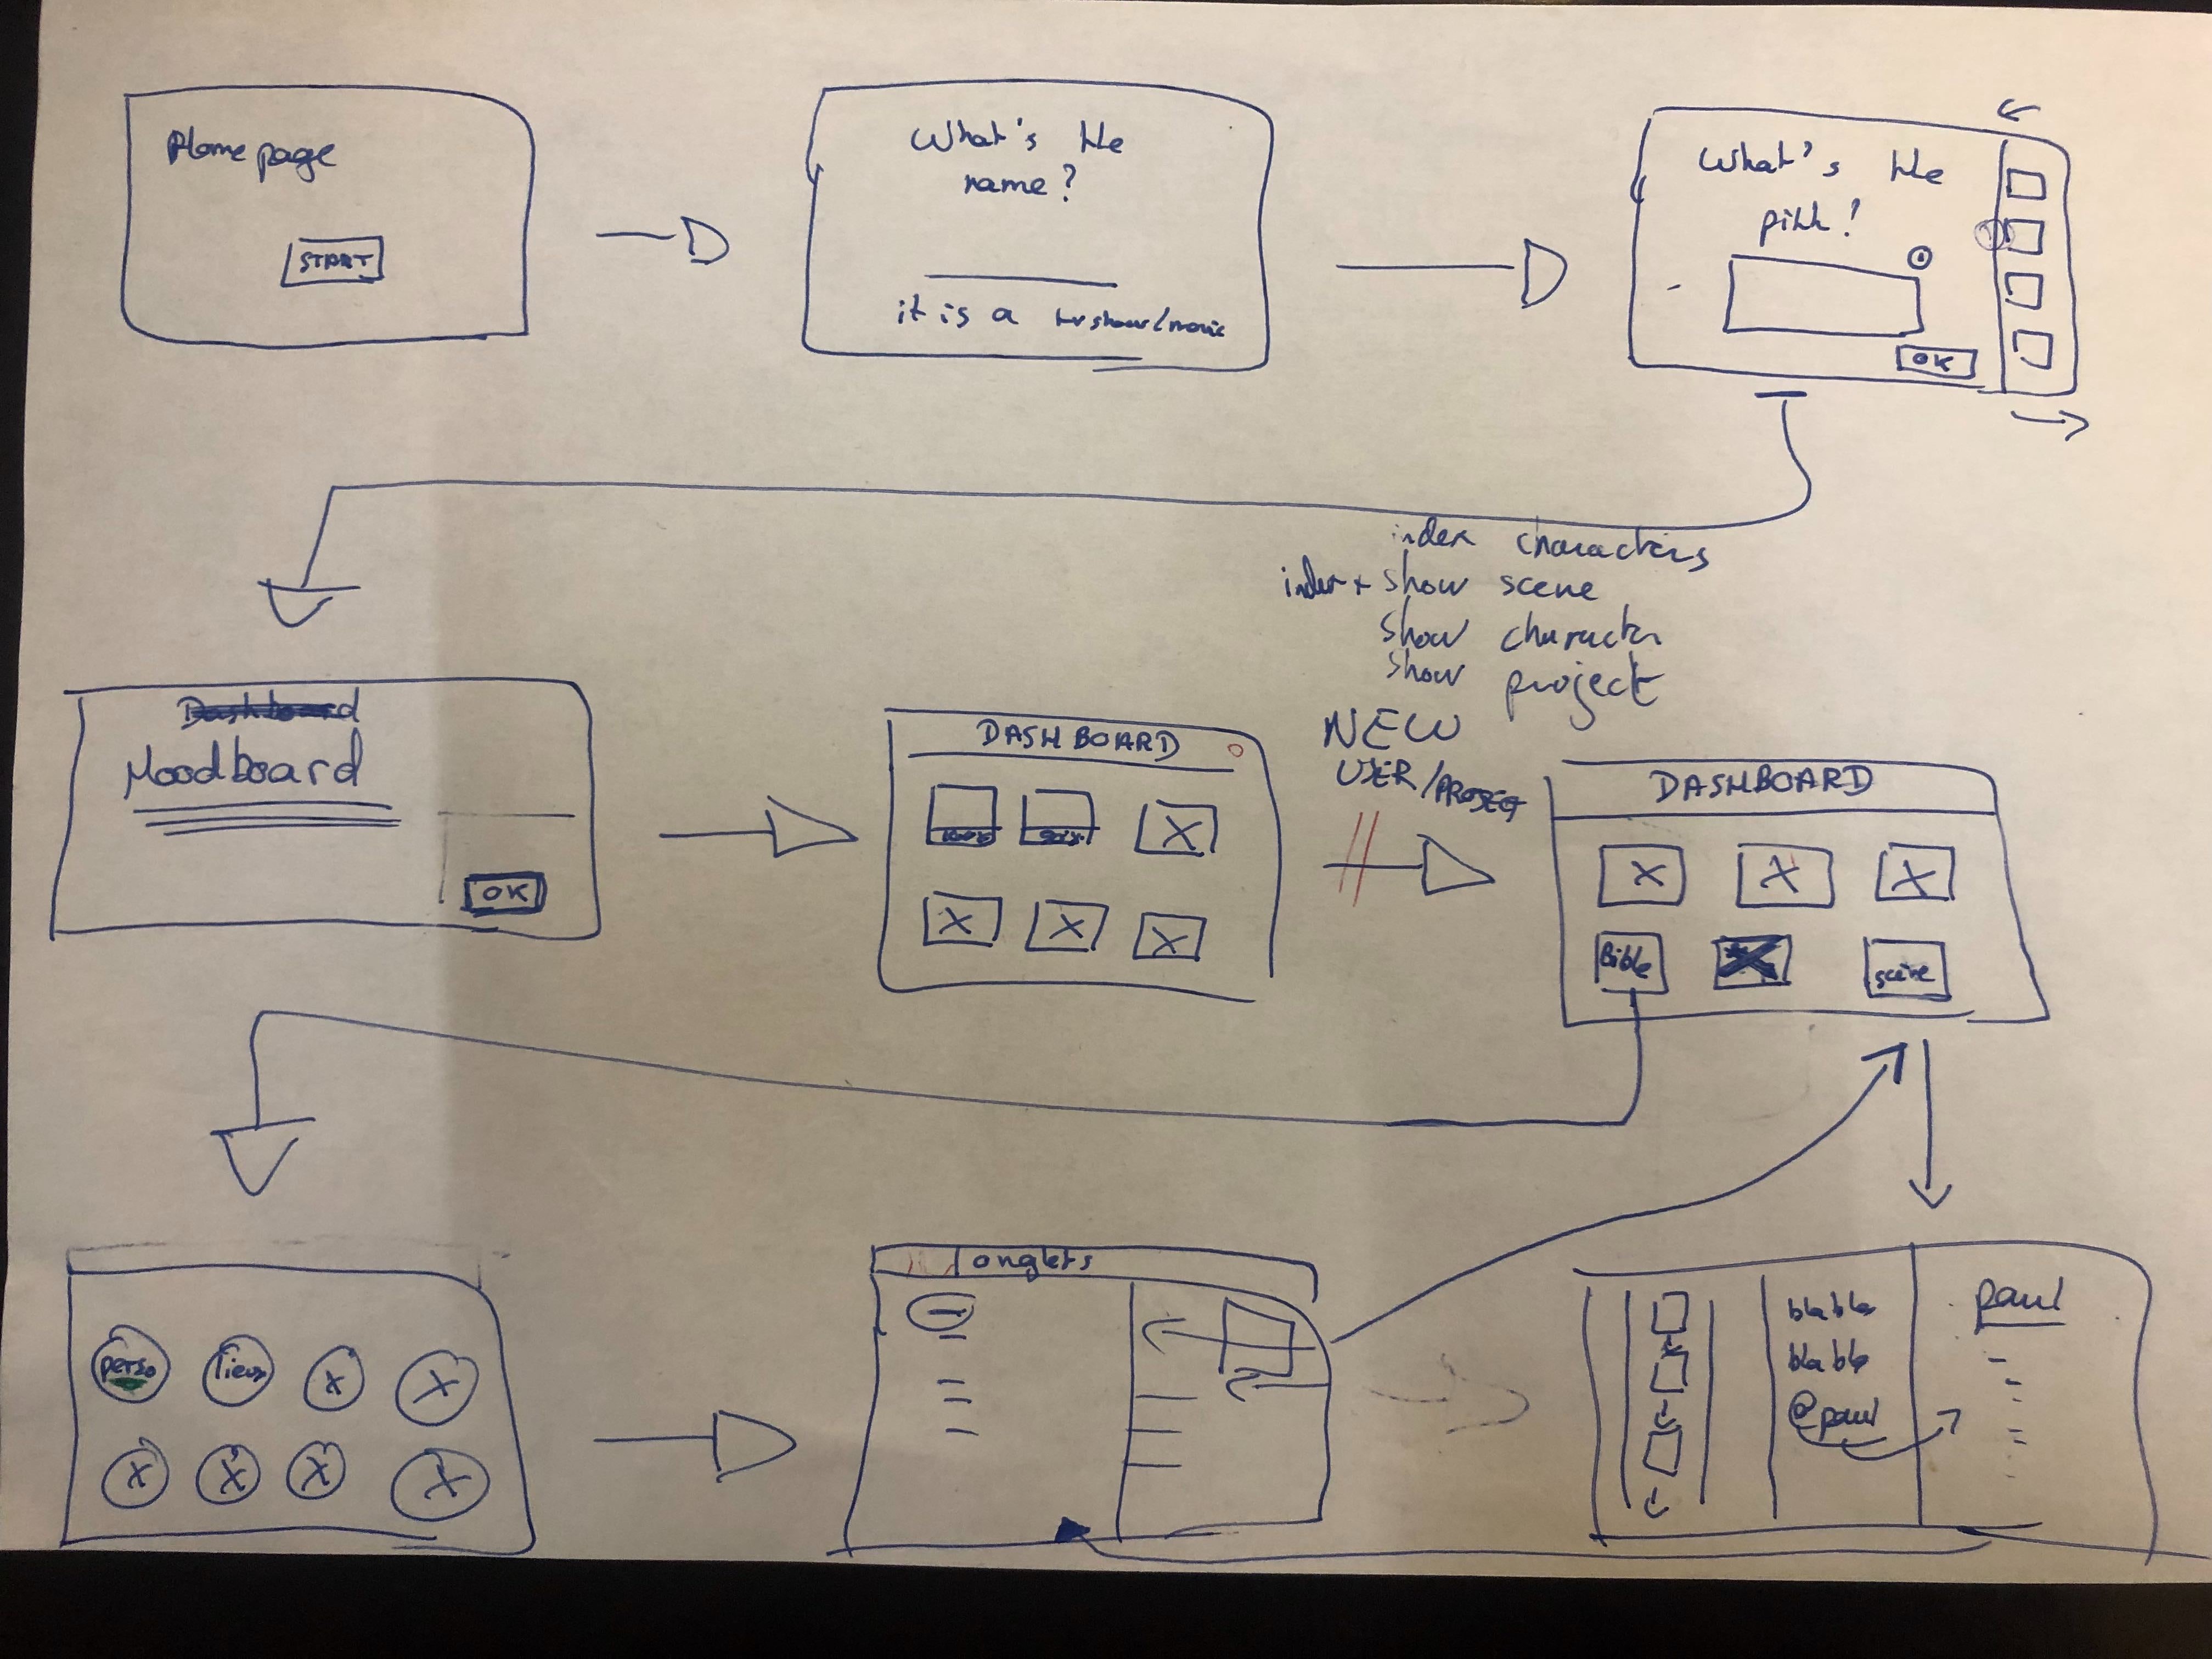 Home page
START
What's the
name?
it is a tv show/movie
What's the
pitch?
OK
index characters
index + show scene
show character
show project
Dashboard
Moodboard
OK
DASHBOARD
NEW
USER/PROJECT
DASHBOARD
Bible
scène
perso
lieux
onglets
blabla
blabla
@paul
paul